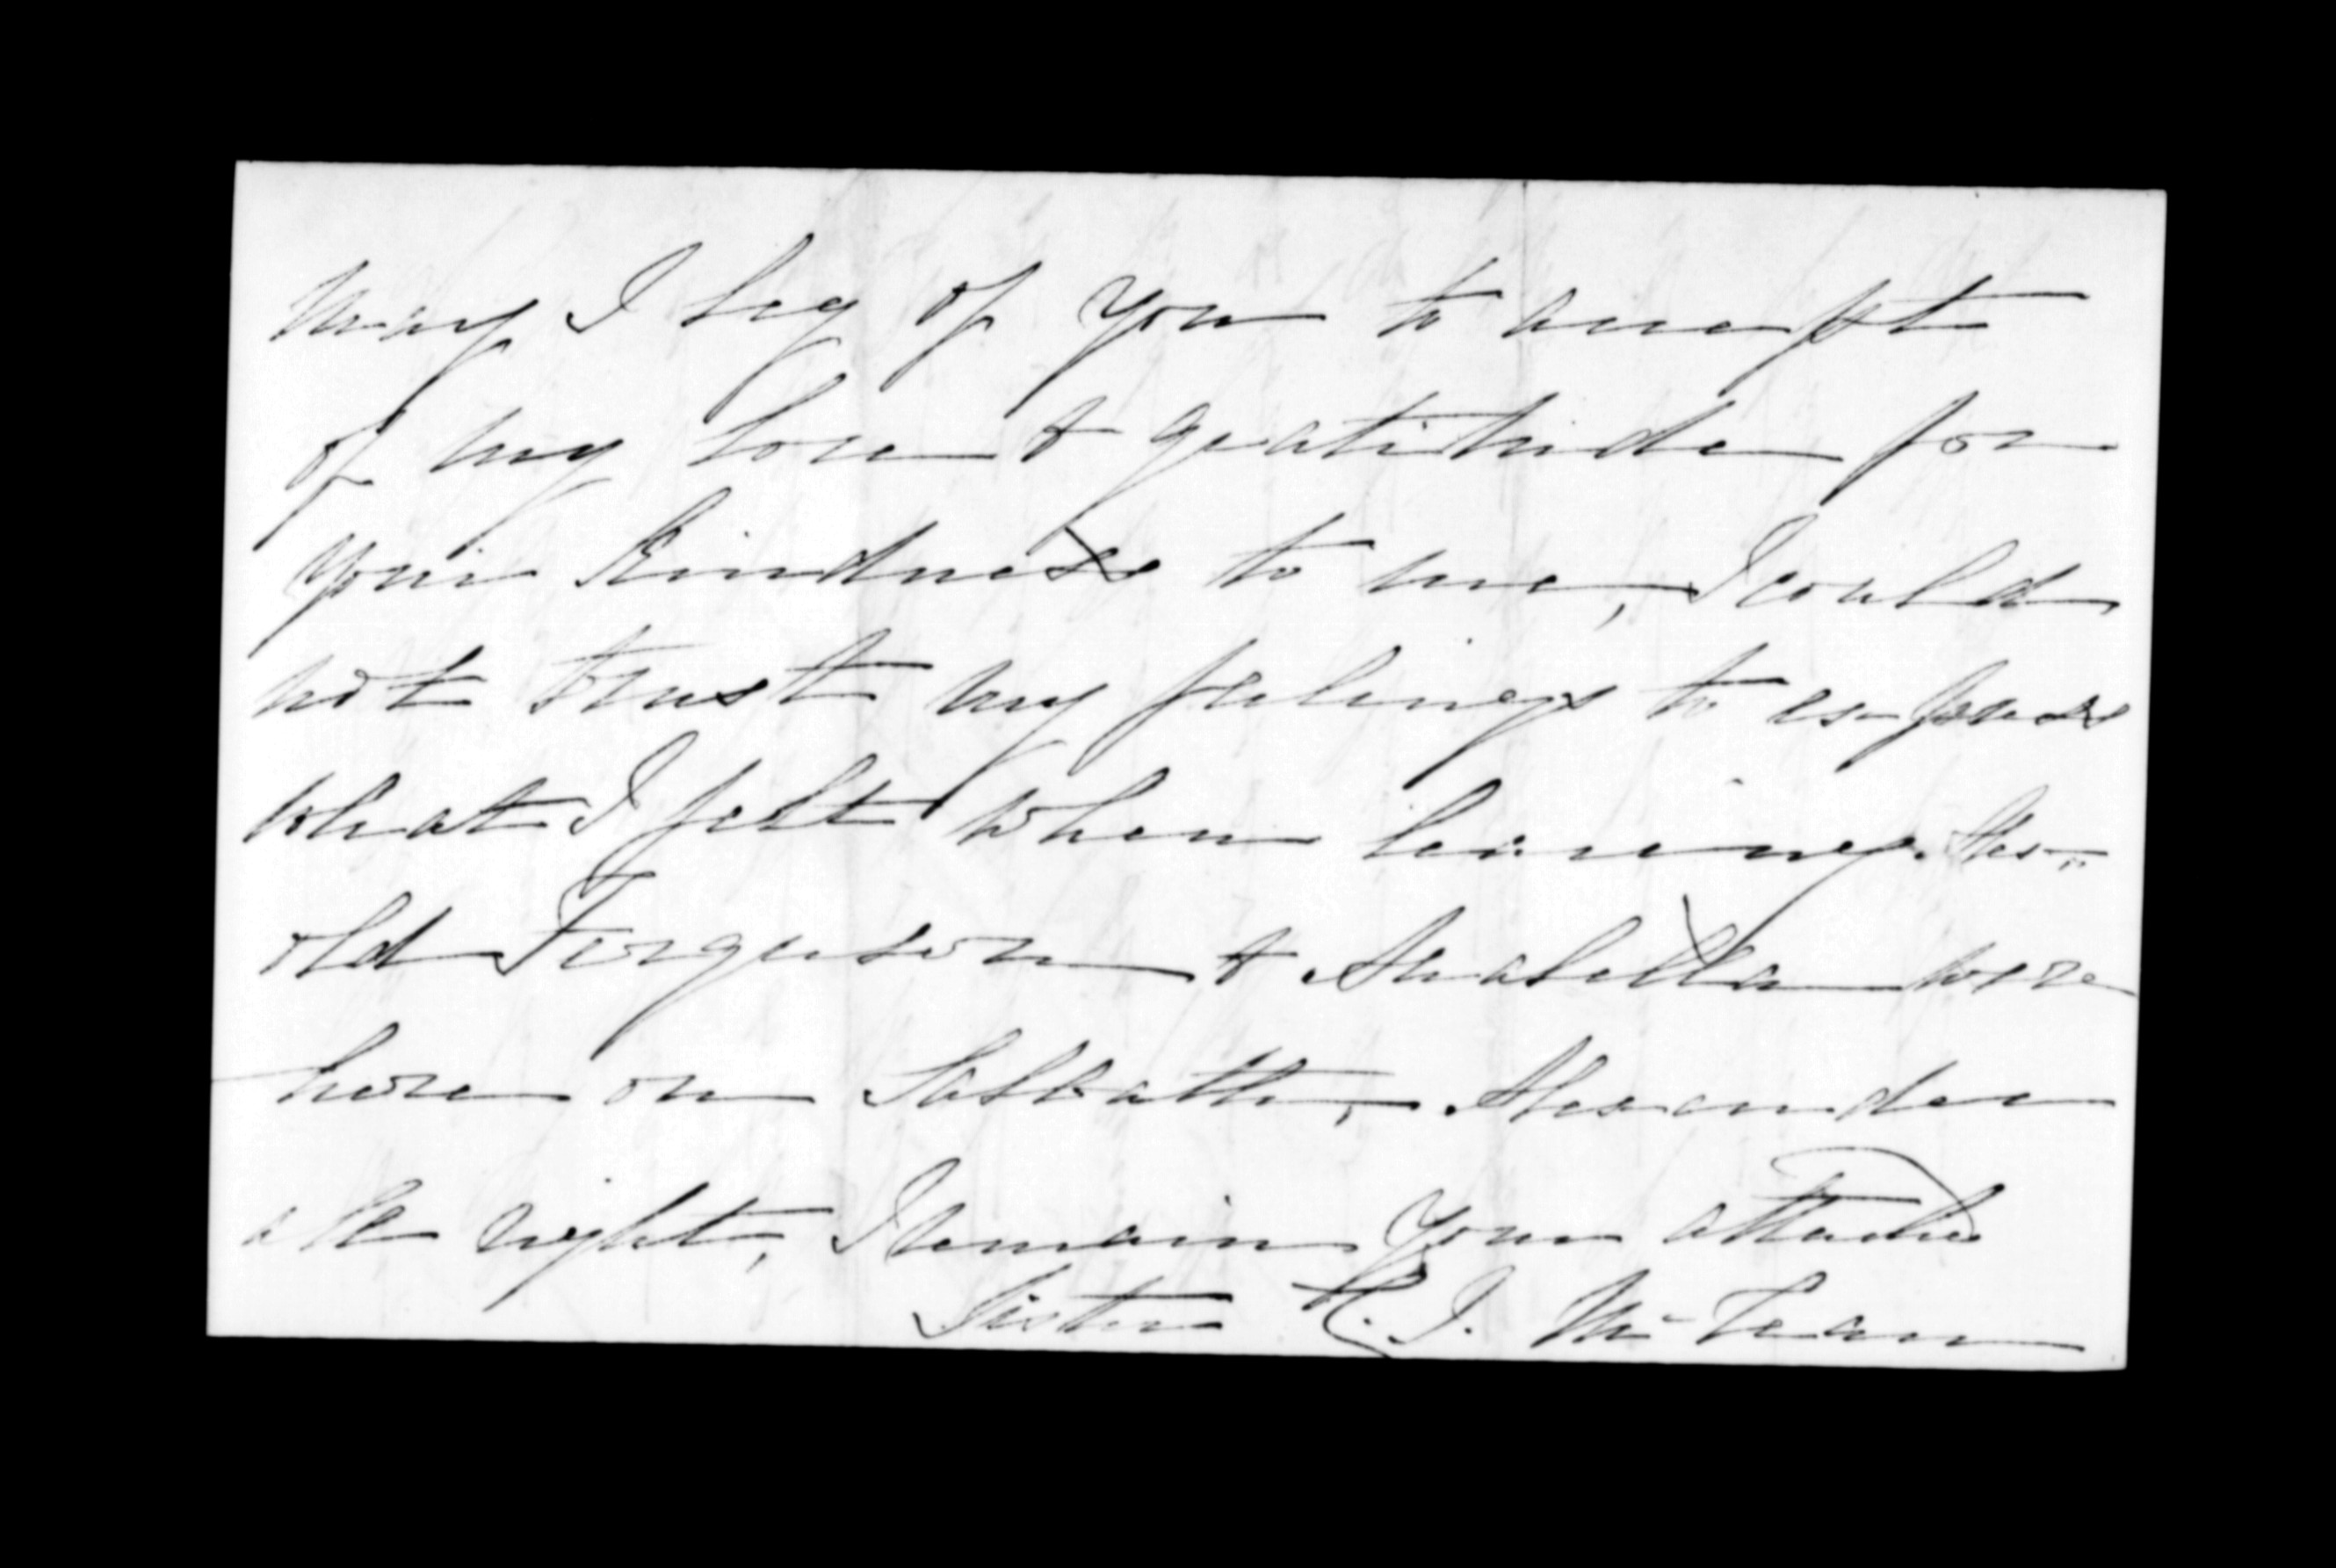 May I beg of you to accept
of my love & gratitude for
your kindness to me, I could
not trust my feelings to express
what I felt when leaving.
old Ferguson & Anabella were
here on Sabbath, Alexander
all right, I remain your attached
Sister K. I. McLean